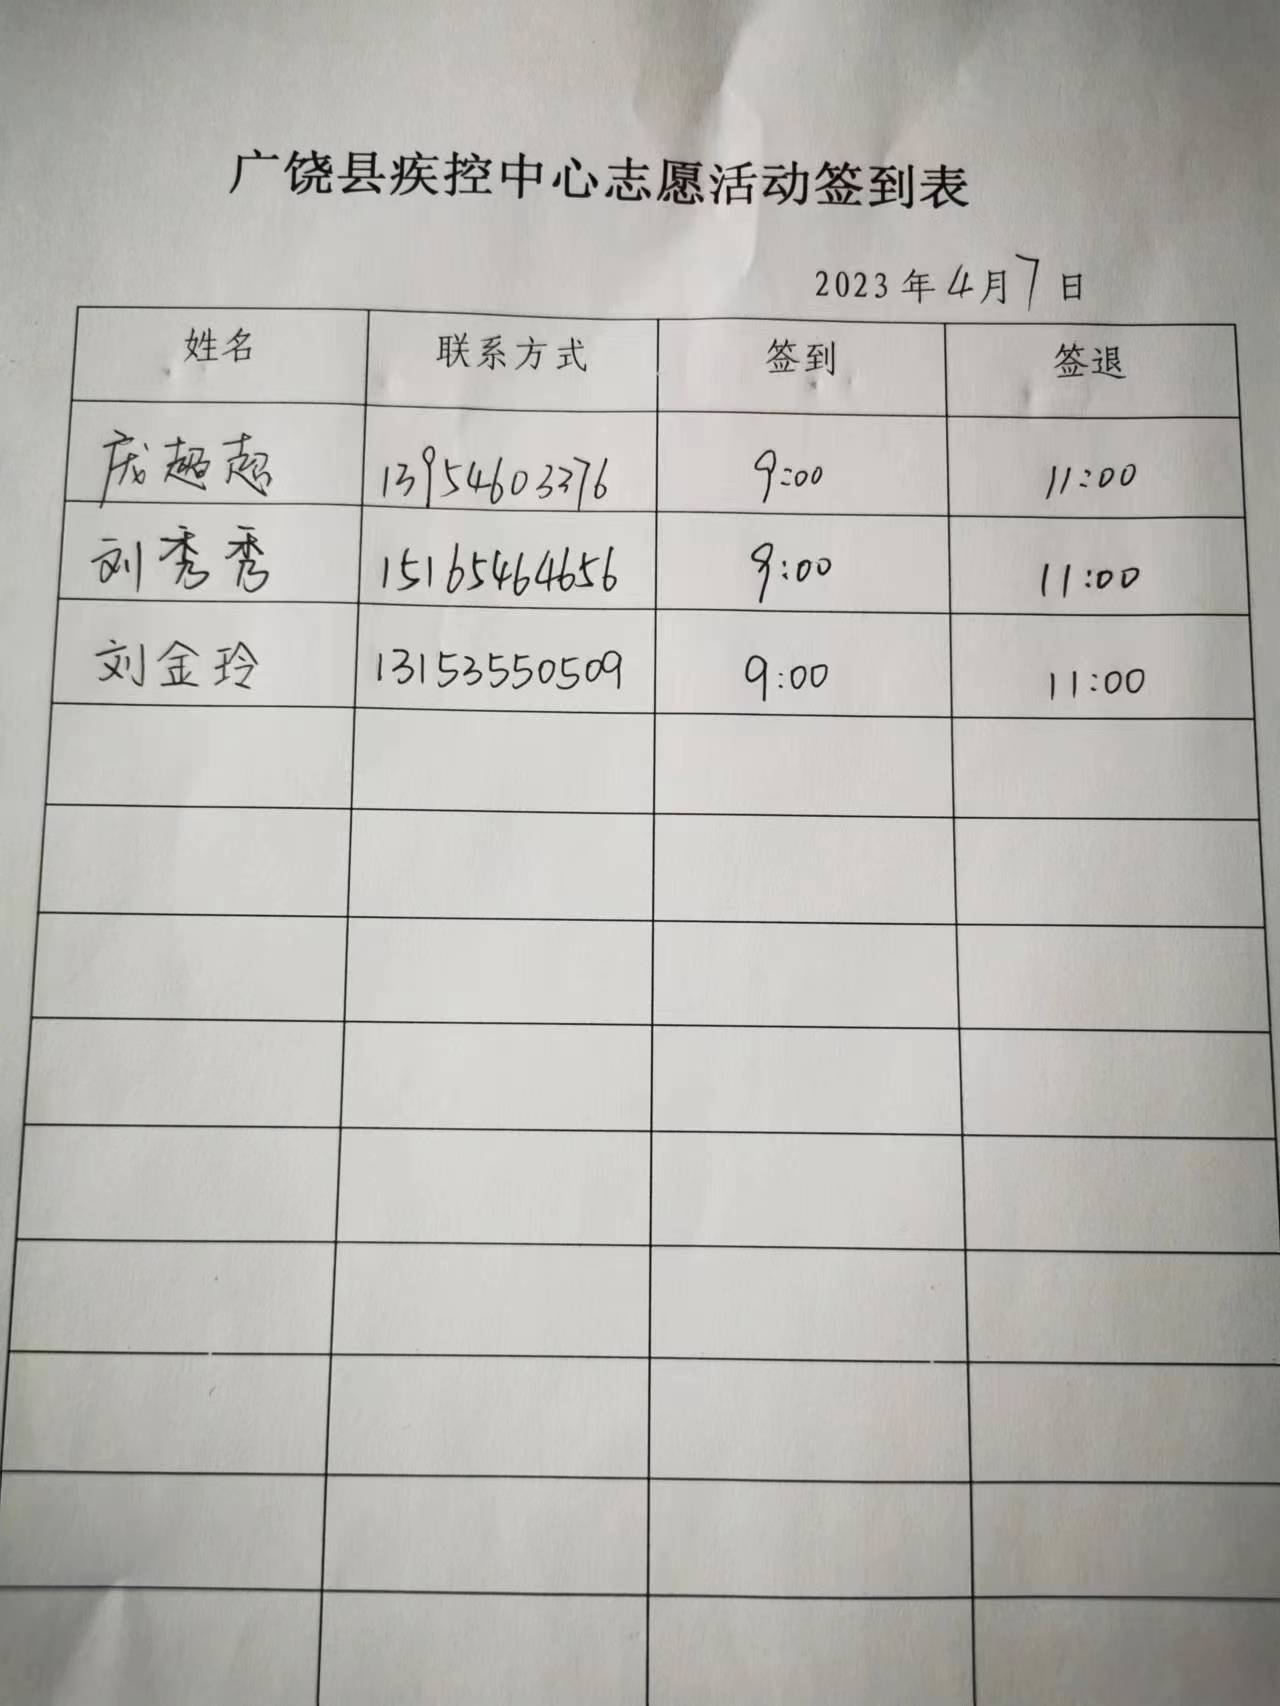 广饶县疾控中心志愿活动签到表
2023年4月7日
姓名 联系方式 签到 签退
庞超超 13954603376 9:00 11:00
刘秀秀 15165464656 9:00 11:00
刘金玲 13153550509 9:00 11:00